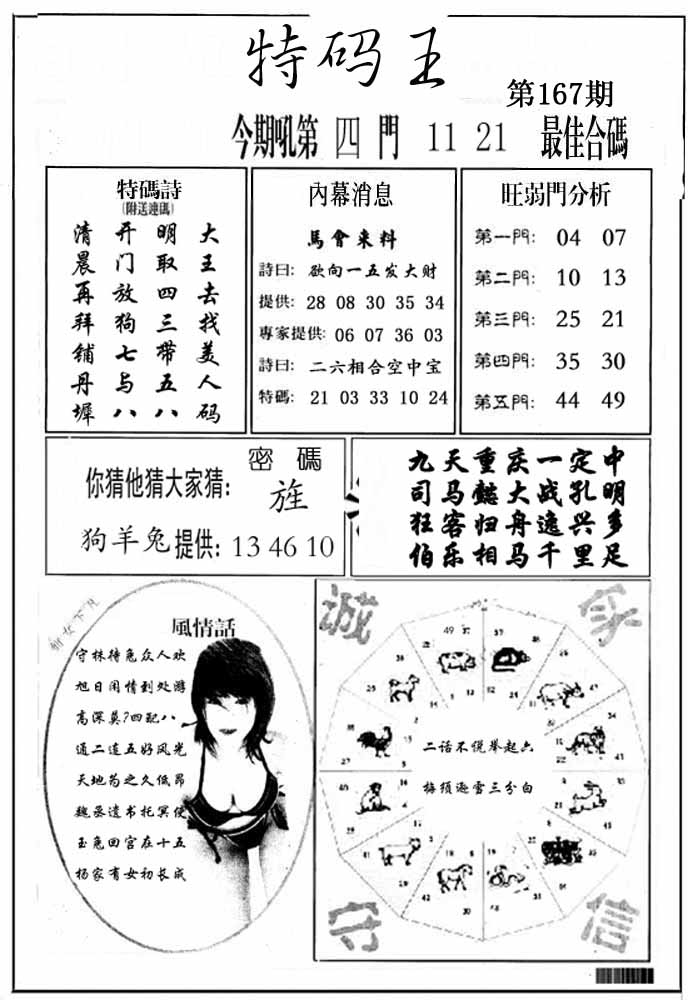 特码王
第167期
今期吼第 四 門 11 21 最佳合碼
特碼詩
(附送連碼)
清开明大
晨门取王
再放四去
拜狗三找
铺七带美
丹与五人
墀八八码
內幕消息
馬會来料
詩曰: 欲向一五发大财
提供: 28 08 30 35 34
專家提供: 06 07 36 03
詩曰: 二六相合空中宝
特碼: 21 03 33 10 24
旺弱門分析
第一門: 04 07
第二門: 10 13
第三門: 25 21
第四門: 35 30
第五門: 44 49
密碼
你猜他猜大家猜: 旌
狗羊兔 提供: 13 46 10
九天重庆一定中
司马懿大战孔明
狂客归舟逸兴多
伯乐相马千里足
風情話
守株待兔众人欢
旭日闲情到处游
高深莫?四配八
通二连五好风光
天地为之久低昂
魏丞遗书托冥使
玉兔回宫在十五
杨家有女初长成
诚
守
信
二话不慌举起六
梅须逊雪三分白